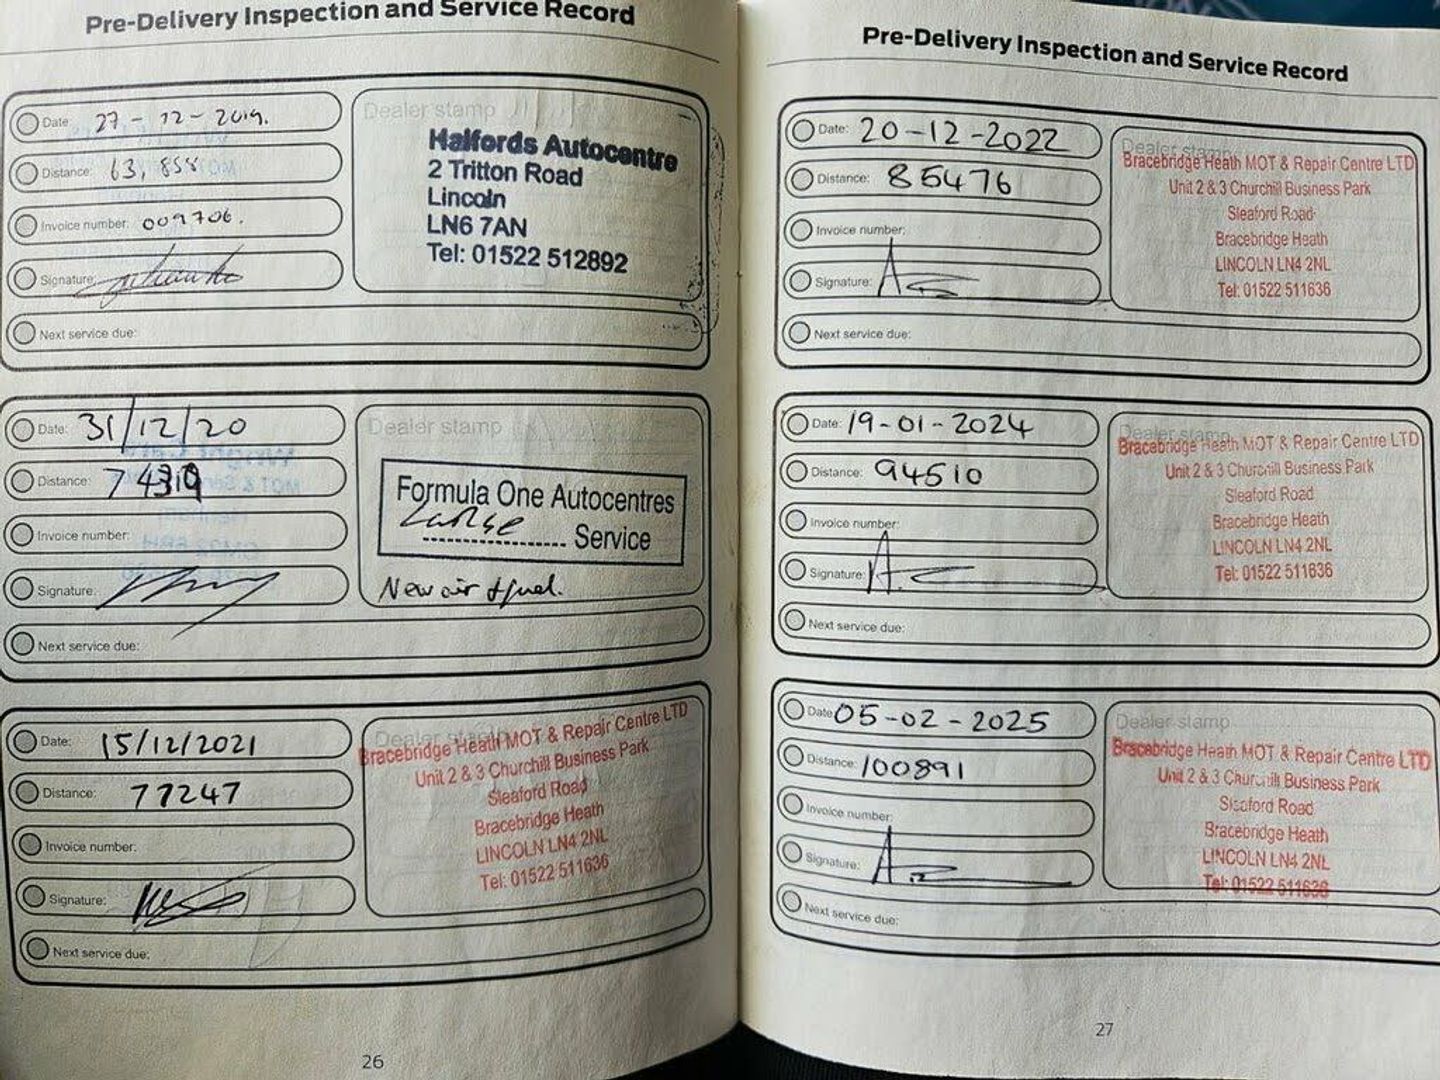 Pre-Delivery Inspection and Service Record
Date: 27-12-2019.
Distance: 63,858
Invoice number: 009706.
Signature:
Next service due:
Dealer stamp
Halfords Autocentre
2 Tritton Road
Lincoln
LN6 7AN
Tel: 01522 512892
Date: 31/12/20
Distance:
Invoice number:
Signature:
Next service due:
Dealer stamp
Formula One Autocentres
Large Service
New air + fuel.
Date: 15/12/2021
Distance: 77247
Invoice number:
Signature:
Next service due:
Dealer stamp
Bracebridge Heath MOT & Repair Centre LTD
Unit 2 & 3 Churchill Business Park
Sleaford Road
Bracebridge Heath
LINCOLN LN4 2NL
Tel: 01522 511636
26
Pre-Delivery Inspection and Service Record
Date: 20-12-2022
Distance: 85476
Invoice number:
Signature:
Next service due:
Dealer stamp
Bracebridge Heath MOT & Repair Centre LTD
Unit 2 & 3 Churchill Business Park
Sleaford Road
Bracebridge Heath
LINCOLN LN4 2NL
Tel: 01522 511636
Date: 19-01-2024
Distance: 94510
Invoice number:
Signature:
Next service due:
Dealer stamp
Bracebridge Heath MOT & Repair Centre LTD
Unit 2 & 3 Churchill Business Park
Sleaford Road
Bracebridge Heath
LINCOLN LN4 2NL
Tel: 01522 511636
Date: 05-02-2025
Distance: 100891
Invoice number:
Signature:
Next service due:
Dealer stamp
Bracebridge Heath MOT & Repair Centre LTD
Unit 2 & 3 Churchill Business Park
Sleaford Road
Bracebridge Heath
LINCOLN LN4 2NL
Tel: 01522 511636
27